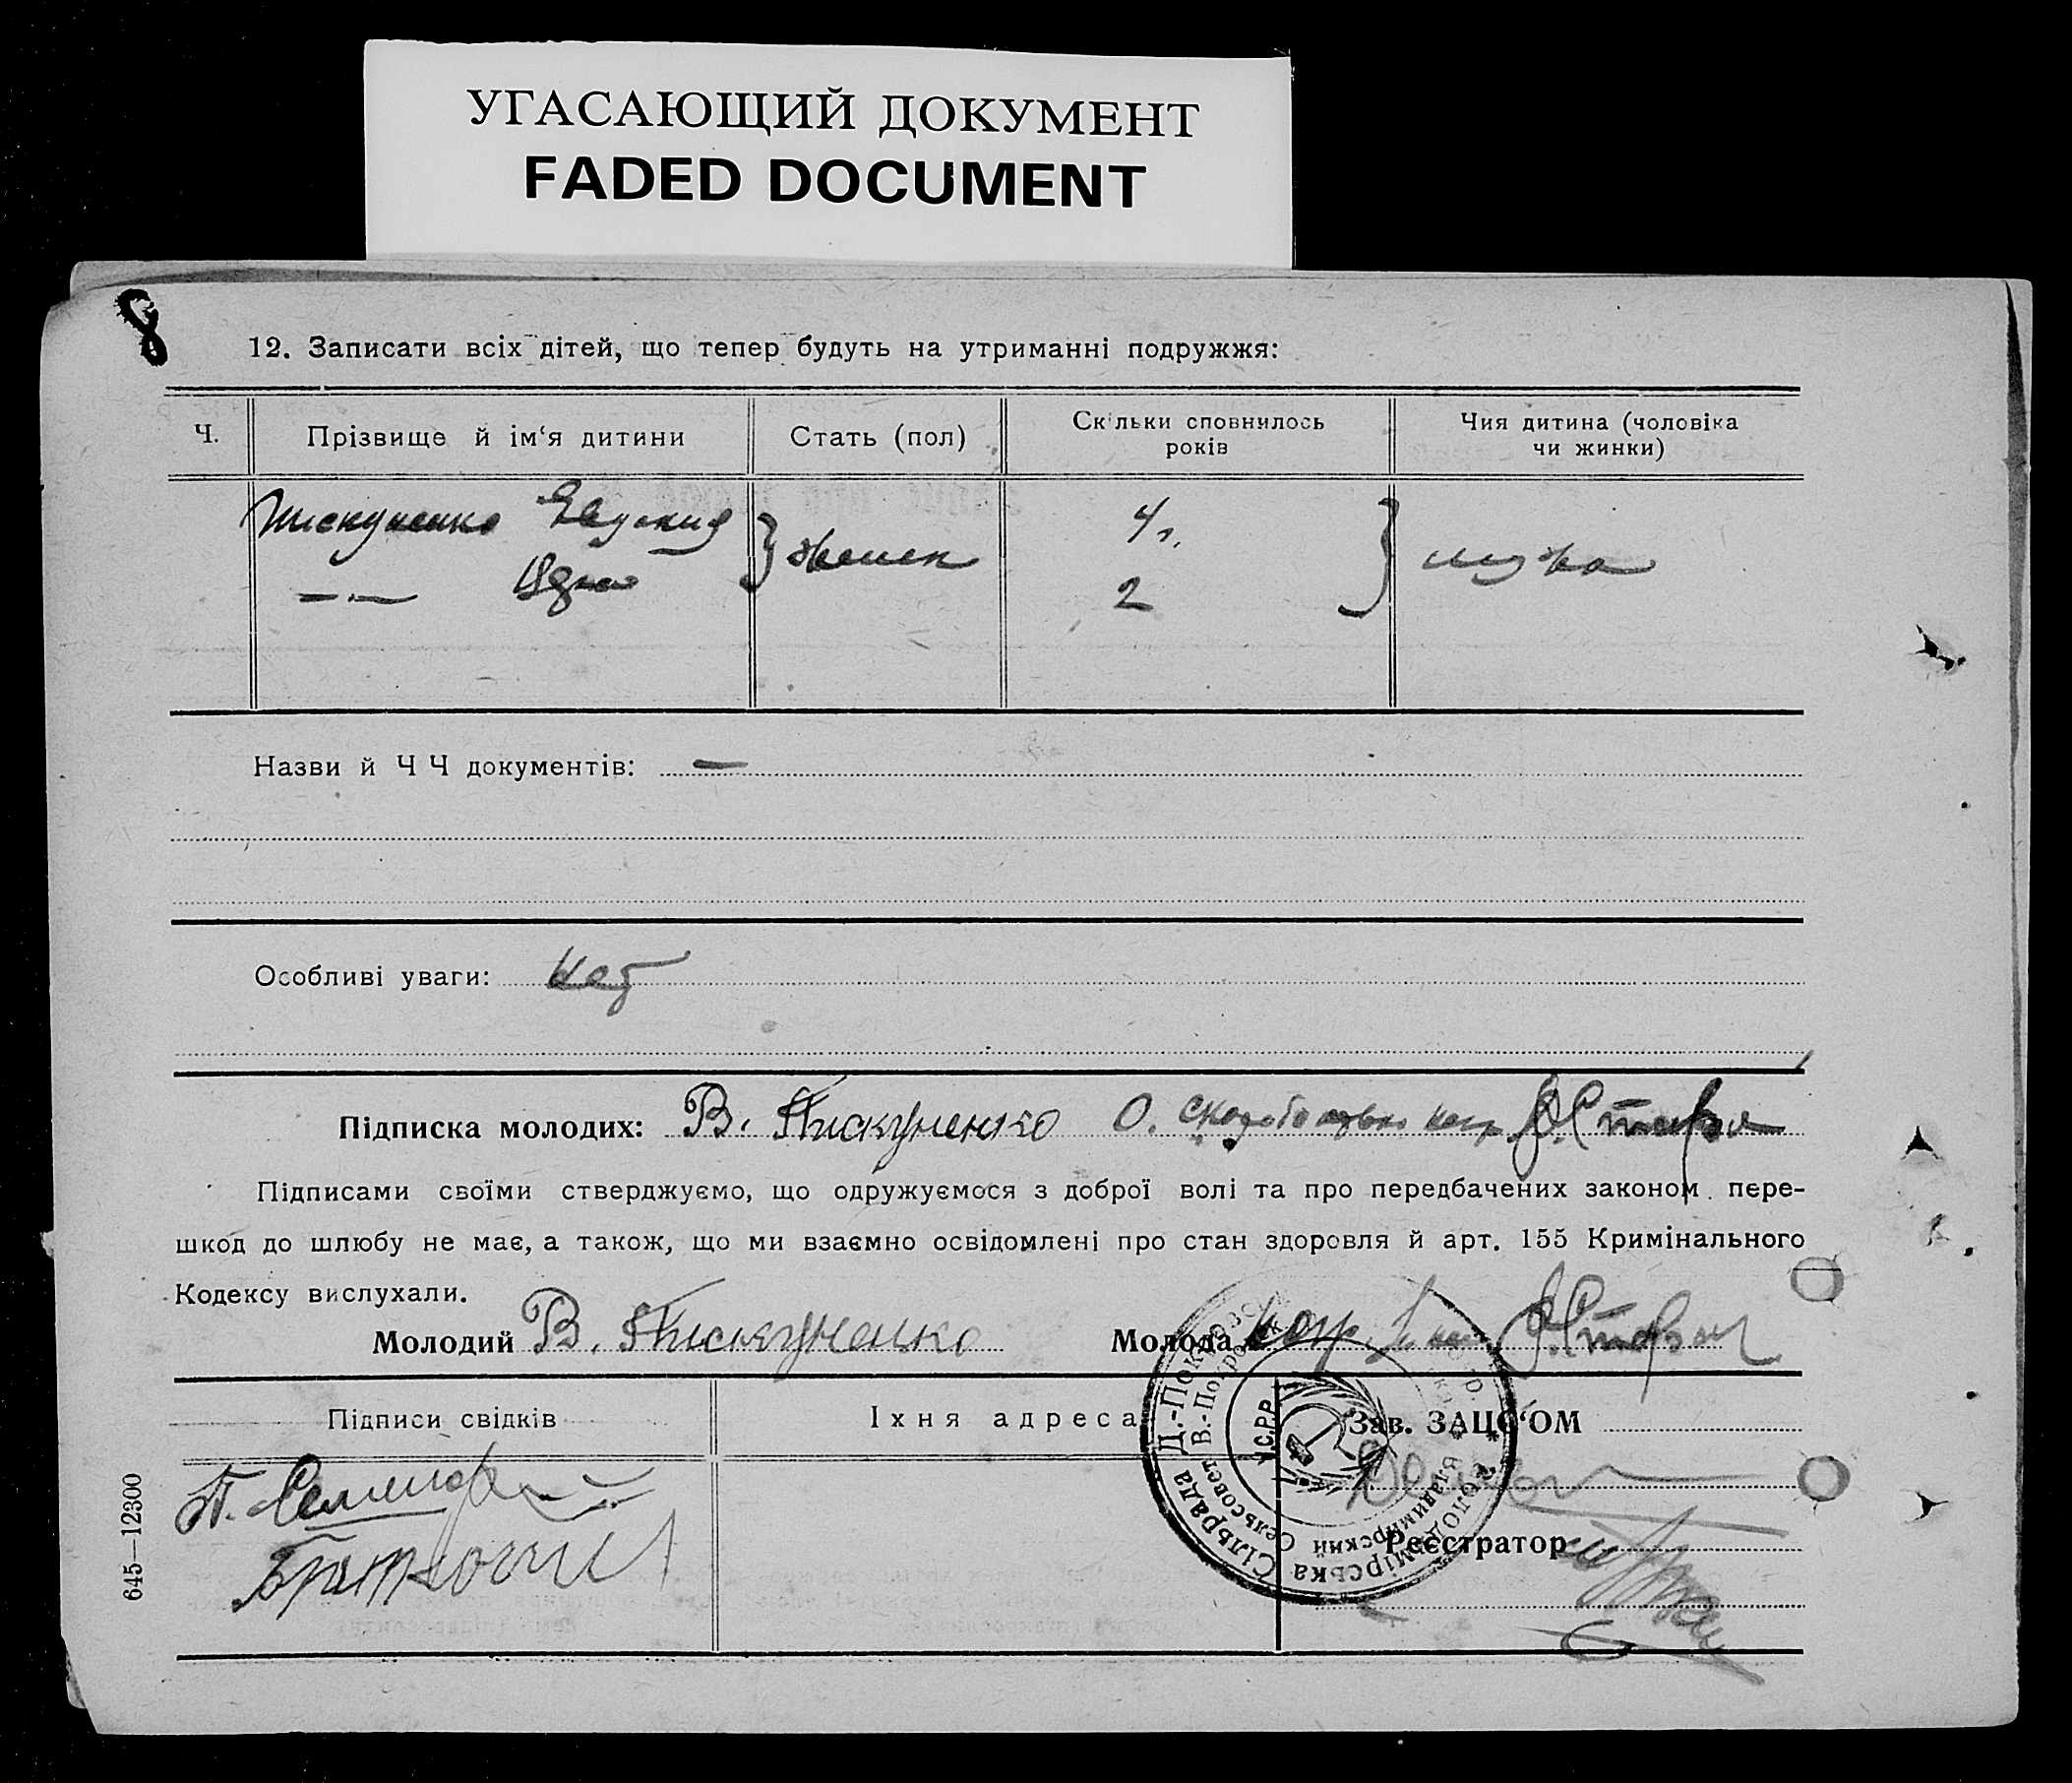 УГАСАЮЩИЙ ДОКУМЕНТ
FADED DOCUMENT
8
12. Записати всіх дітей, що тепер будуть на утриманні подружжя:
Ч.
Прізвище й ім‘я дитини
Стать (пол)
Скільки сповнилось
років
Чия дитина (чоловіка
чи жинки)
Пискуненко
женск
4 г.
мужа
2
Назви й Ч Ч документів: —
Особливі уваги: Нет
Підписка молодих: В. Пискуненко О.
Підписами своїми стверджуємо, що одружуємося з доброї волі та про передбачених законом пере-
шкод до шлюбу не має, а також, що ми взаємно освідомлені про стан здоровля й арт. 155 Кримінального
Кодексу вислухали.
Молодий В. Пискуненко Молода
Підписи свідків
Іхня адреса
Зав. ЗАЦС‘ОМ
Реєстратор
Д.-Покровськ
Володимірська Сільрада
В.-Покровск
Владимирский Сельсовет
У.С.Р.Р.
645—12300